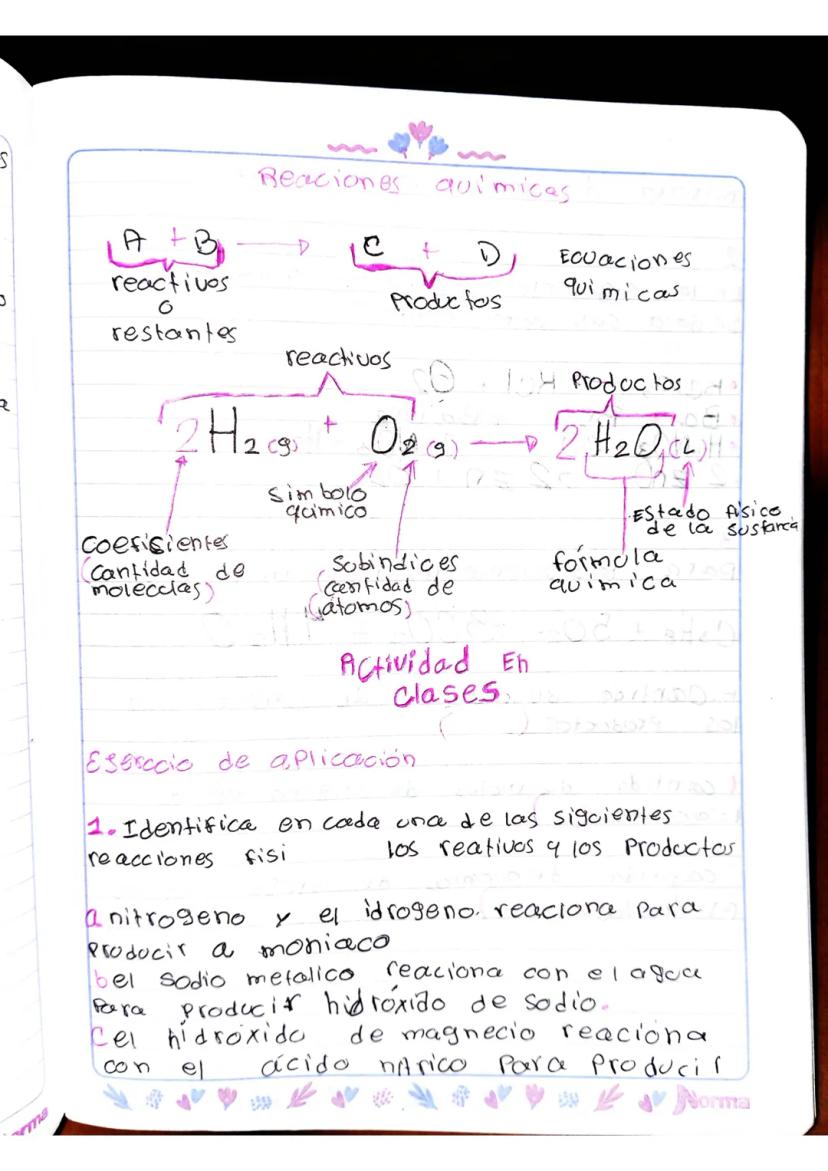 Reaciones quimicas
A + B → C + D
Ecuaciones
quimicas
reactivos
o
restantes
Productos
reactivos
Productos
2 H2 (g) + O2 (g) → 2 H2O (L)
simbolo
quimico
Estado físico
de la sustancia
coefisientes
(cantidad de
moleculas)
Subindices
(cantidad de
átomos)
fórmula
quimica
Actividad En
clases
Esercicio de aplicación
1. Identifica en cada una de las siguientes
reacciones fisi los reativos y los Productos
a nitrogeno y el idrogeno. reaciona Para
Producir a moniaco
b el sodio metalico reaciona con el agua
Para producir hidróxido de sodio.
C el hídroxido de magnecio reaciona
con el ácido nítrico Para Producir
Norma